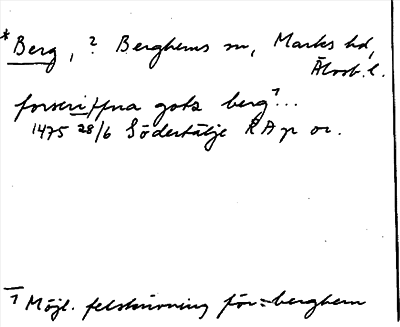 *Berg, ? Berghems sn, Marks hd,
Älvsb. l.
forscri/fna gotz berg ┐...
1475 28/6 Södertälje RAp or.
┐ Möjl. felskrivning för =berghem